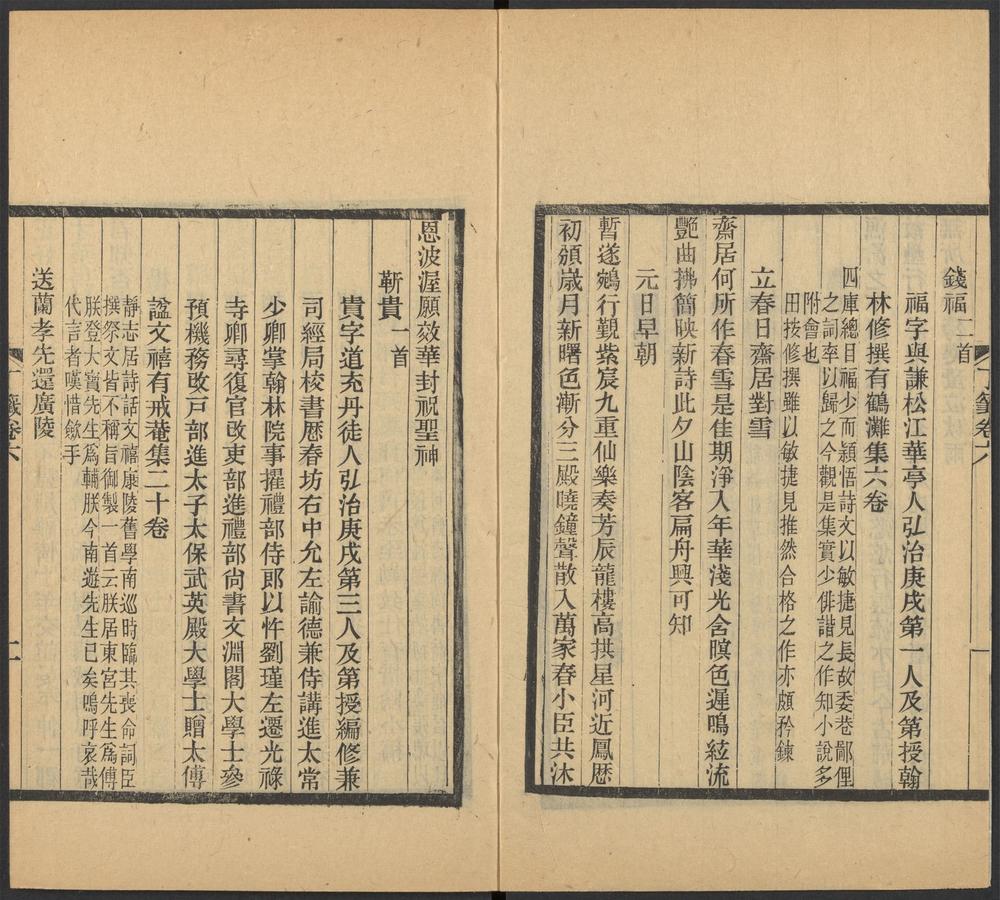 錢福二首
福字與謙松江華亭人弘治庚戌第一人及第授翰
林修撰有鶴灘集六卷
四庫總目福少而穎悟詩文以敏捷見長故委巷鄙俚
之詞率以歸之今觀是集實少俳諧之作知小說多
附會也
田按修撰雖以敏捷見推然合格之作亦頗矜鍊
立春日齋居對雪
齋居何所作春雪是佳期淨入年華淺光含暝色遲鳴絃流
艷曲拂簡映新詩此夕山陰客扁舟興可知
元日早朝
暫遂鵷行覲紫宸九重仙樂奏芳辰龍樓高拱星河近鳳曆
初頒歲月新曙色漸分三殿曉鐘聲散入萬家春小臣共沐
恩波渥願效華封祝聖神
靳貴一首
貴字道充丹徒人弘治庚戌第三人及第授編修兼
司經局校書歷春坊右中允左諭德兼侍講進太常
少卿掌翰林院事擢禮部侍郎以忤劉瑾左遷光祿
寺卿尋復官改吏部進禮部尙書文淵閣大學士參
預機務改戶部進太子太保武英殿大學士贈太傅
諡文禧有戒菴集二十卷
靜志居詩話文禧康陵舊學南巡時臨其喪命詞臣
撰祭文皆不稱旨御製一首云朕居東宮先生爲傅
朕登大寶先生爲輔朕今南遊先生已矣嗚呼哀哉
代言者嘆惜歛手
送蘭孝先還廣陵
丁籤卷六
二